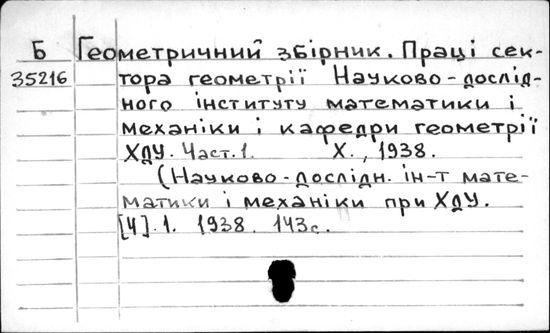 Б Геометричний збірник. Праці сек-
35216 тора геометрії Науково-дослід-
ного інституту математики і
механіки і кафедри геометрії
ХДУ. Част. 1. Х., 1938.
(Науково-дослідн. ін-т мате-
матики і механіки при ХДУ.
[Ч]. 1. 1938. 143с.